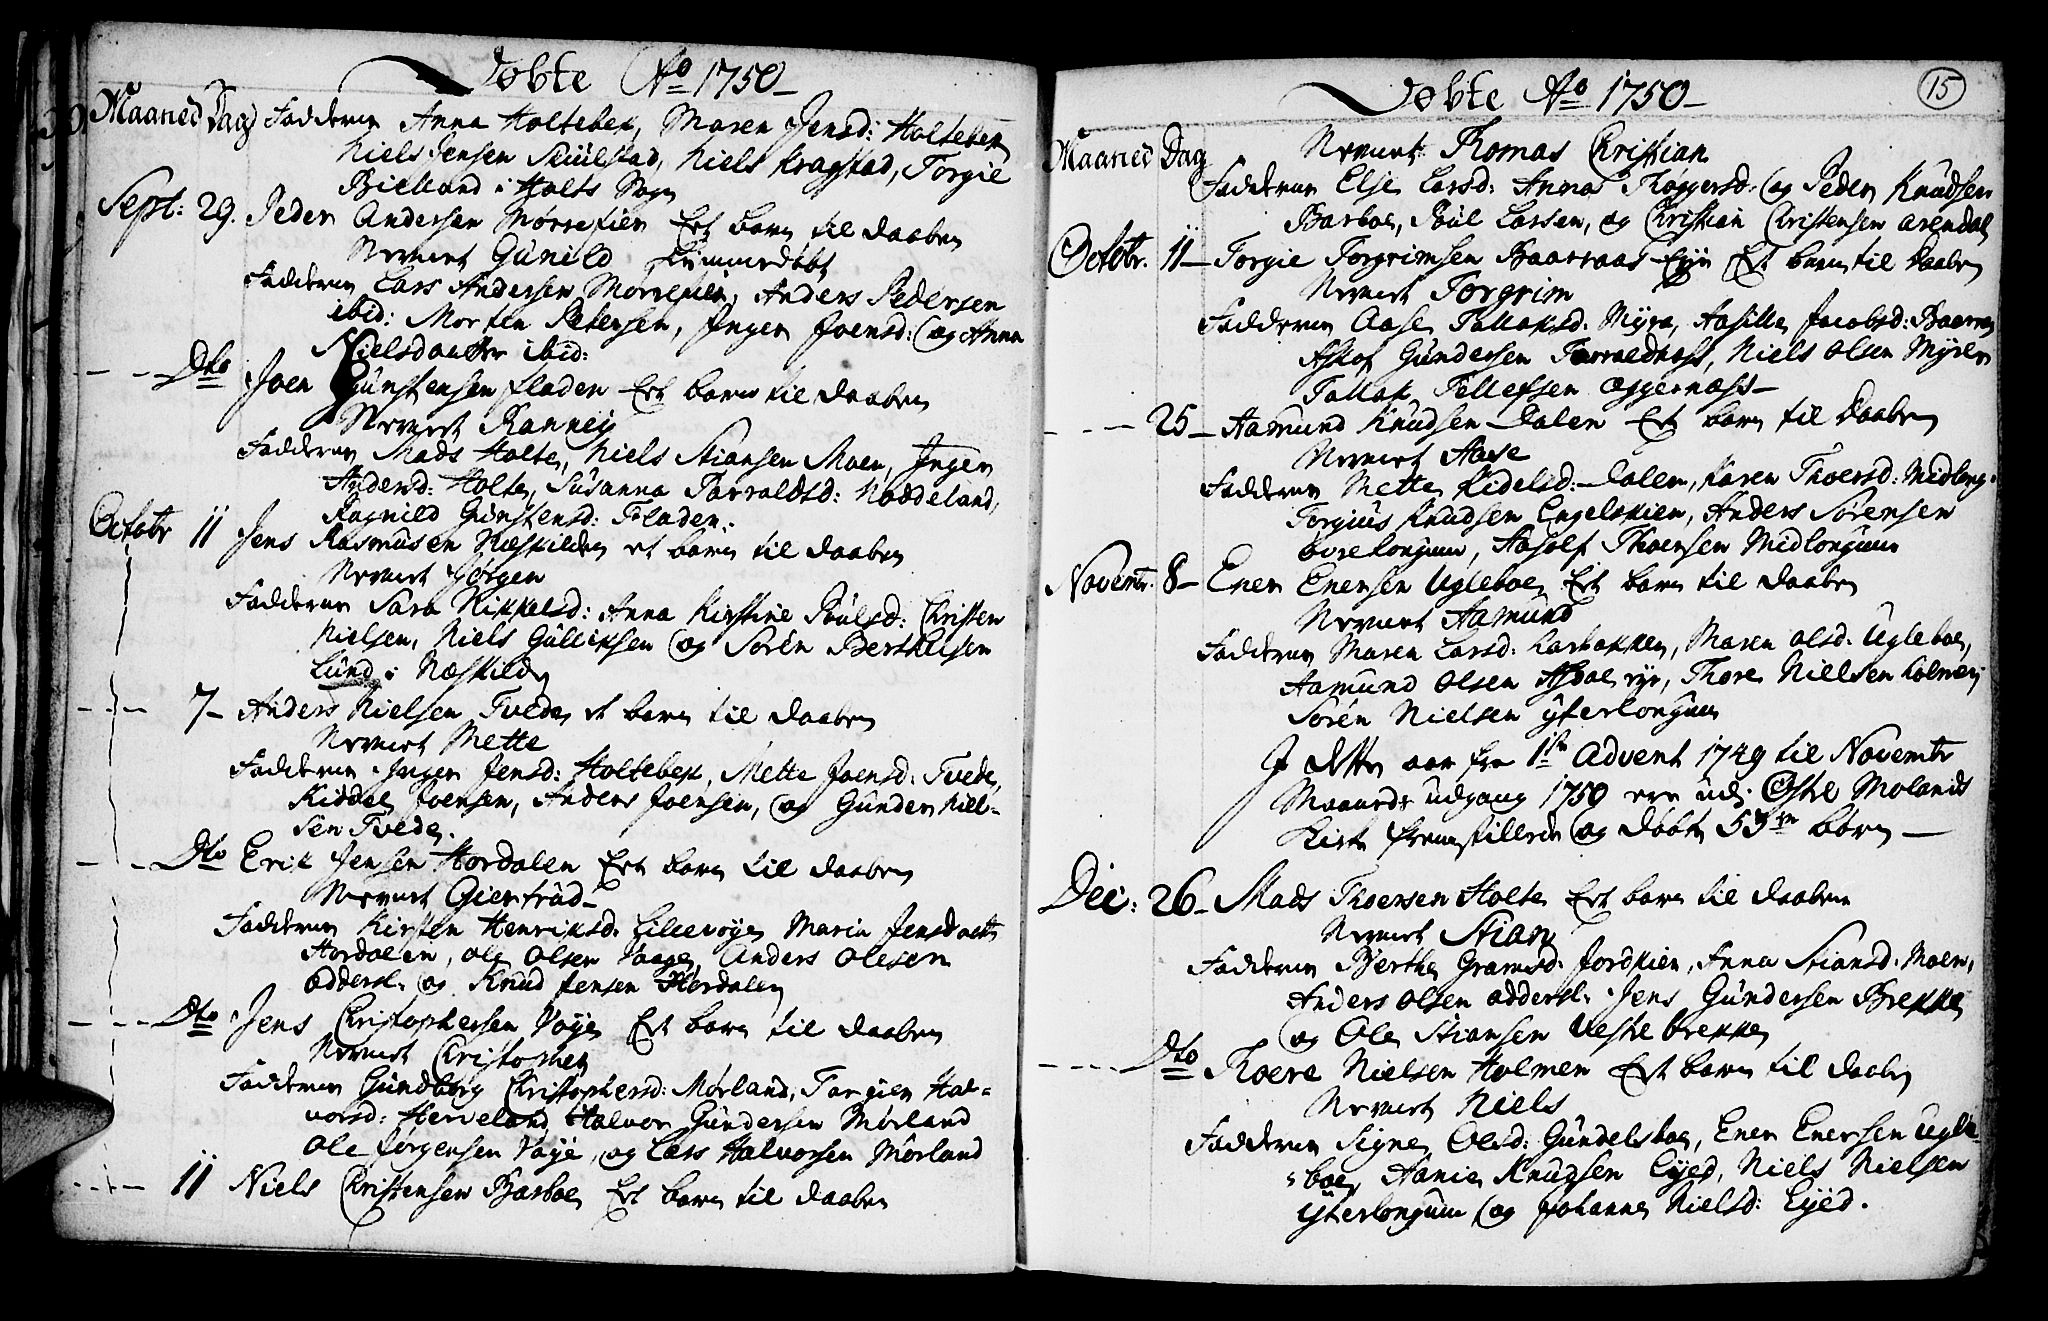 Døbte Ao 1750
Maaned Dag Fadderne Anna Holtebek, Maren Jensd: Holtebek
Niels Jensen Skiulstad, Niels Kragstad, Torgie
Bielland i Holts Sogn
Sept: 29. Peder Andersen Mørrefier Et barn til daaben
Nevnt Gunild Hiemmedøbt
Fadderne Lars Andersen Morrefier, Anders Pedersen
ibid: Morten Petersen, Inger Joensd: og Anna
Nielsdaatter ibid:
Dto Joen Gunstensen Fladen Et barn til daaben
Nevnt Ranneig
Fadderne Mads Holte, Niels Stiansen Moen, Inger
Andersd: Holte, Susanna Tarraldsd: Noddeland,
Ragnild Gunstensd: Fladen.
Octobr 11 Jens Rasmusen Næskilden et barn til daaben
Nevnt Jørgen
Fadderne Sara Mikkelsd: Anna Kirstine Poulsd: Christen
Nielsen, Niels Gulliksen og Sørén Berthelsen
Lund i Næskilde
7 Anders Nielsen Tvede et barn til daaben
Nevnt Mette
Fadderne Inger Jensd: Holtebek, Mette Joensd: Tvede,
Kiddel Joensen, Anders Joensen, og Gunder Niel-
sen Tvede.
Dto Erik Jensen Hordalen Eet barn til daaben
Nevnt Giertrud
Fadderne Kirsten Henriksd: Lillevøye Maria Jensdaatt
Hordalen, Ole Olsen Vaage, Anders Olesen
Oddersl. og Knud Jensen Hordalen
Dto Jens Christophersen Voye Et barn til daaben
Nevnt Christomer
Fadderne Gundborg Christophersd: Mørland, Targier Hal-
vorsd: Herveland, Halvor Gundersen Mørland
Ole Jørgensen Vøye, og Lars Halvorsen Mørland
11 Niels Christensen Barboe Et barn til daaben
15
Døbte Ao 1750
Maaned Dag Nevnt Thomas Christian
Fadderne Else Larsd: Anna Thøgersd: og Peder Knudsen
Barboe, Poul Larsen, og Christian Christensen Arendal
Octobr. 11 Torgie Torgrimsen Baarraas Eyé Et barn til daaben
Nevnt Torgrim
Fadderne Aase Tallaksd: Myre, Aasille Jacobsd: Baarra
Aslof Gundersen Torraldnæss, Niels Olsen Myren
Tallak Tellefsen Oggernæss
25 Aamund Knudsen Dalen Et barn til daaben
Nevnt Aase
Fadderne Mette Kidelsd: Dalen, Karen Thoersd: Midlong.
Torgius Knudsen Engelskien, Anders Sørensen
ovrelongum, Aasolf Thoersen Midlongum
Novembr. 8 Ener Enersen Ugleboe Et barn til daaben
Nevnt Aamund
Fadderne Maren Larsd: Larbakken, Maren Olsd: Ugleboe,
Aamund Olsen Asboe eye, Thore Nielsen Holmen
Sørén Nielsen yterlongum
I dette aar fra 1ste Advent 1749 til Novembr
Maaneds udgang 1750 ere udj Østre Molands
Kirke fremstillede og døbte 53 børn
Dec: 26 Mads Thoersen Holte Et barn til daaben
Nevnt Stian
Fadderne Berthe Gramsd: Jordkien, Anna Stiansd: Moen,
Anders Olsen oddersl. Jens Gundersen Brekke
og Ole Stiansen Vestebrekke
Dto Thoere Nielsen Holmen Et barn til daaben
Nevnt Niels
Fadderne Signe Olsd: Gundelsboe, Ener Enersen Ugle
boe, Aanie Knudsen Eyed, Niels Nielsen
yterlongum og Johanne Nielsd: Eyed.